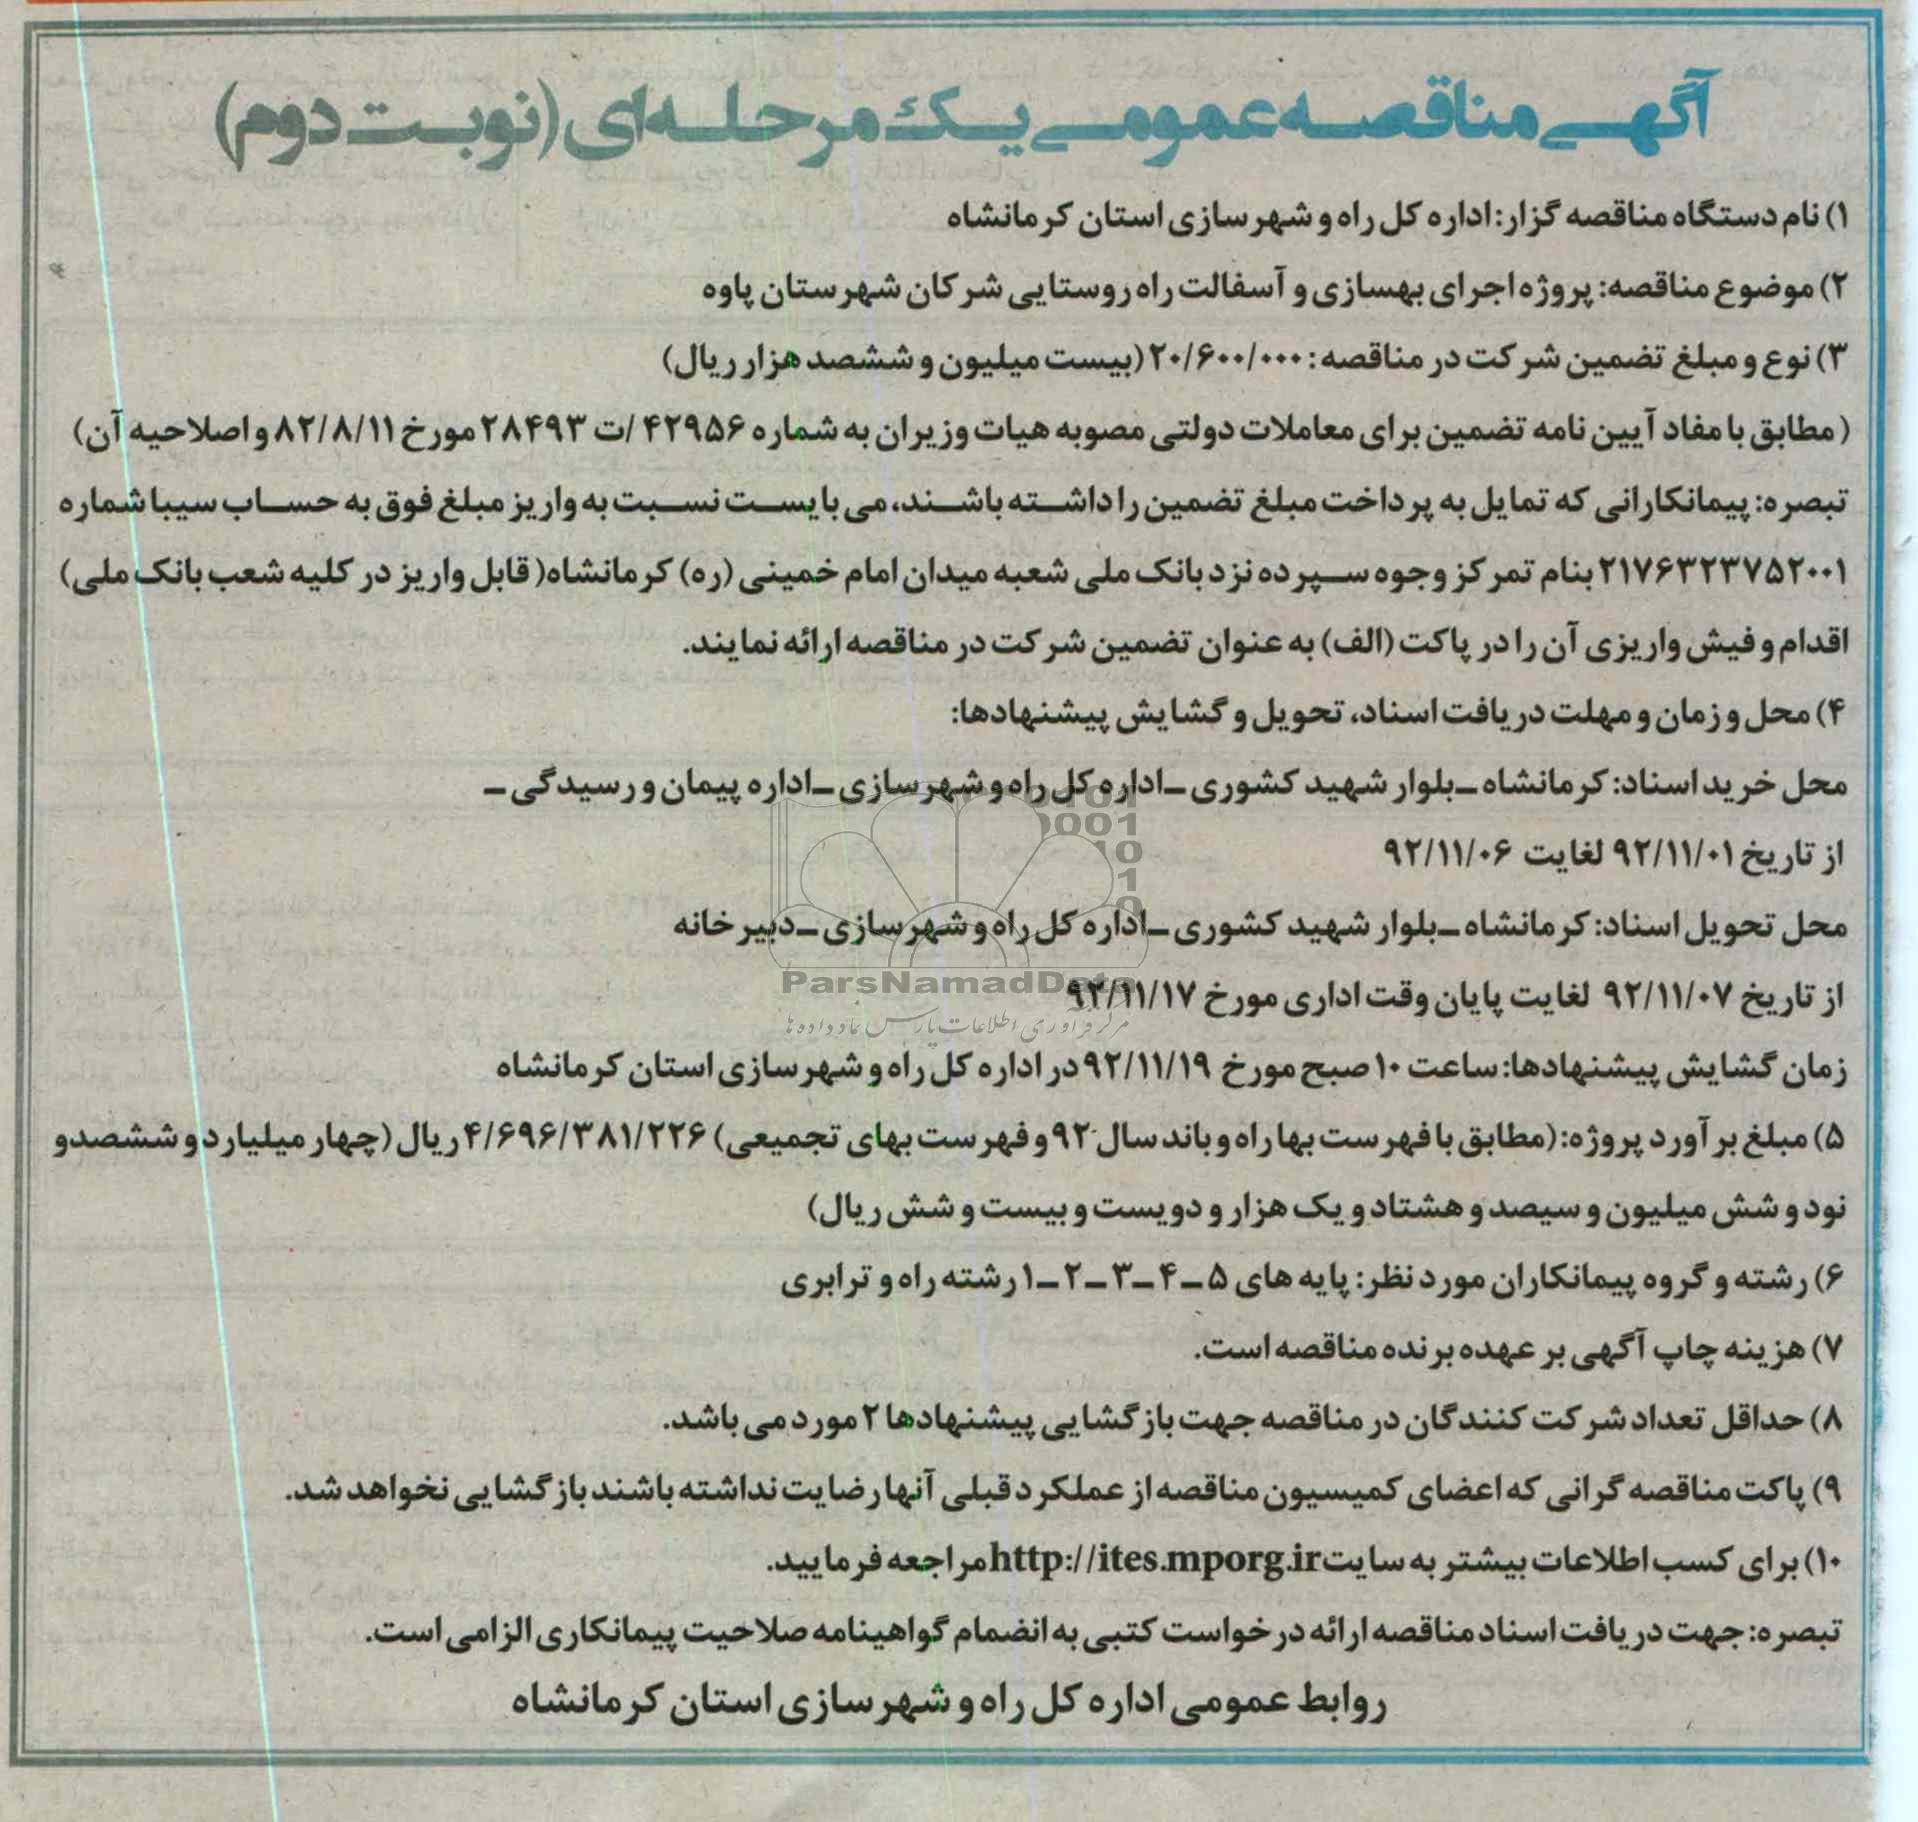 آگهی مناقصه عمومی یک مرحله‌ای (نوبت دوم)
۱) نام دستگاه مناقصه گزار: اداره کل راه و شهرسازی استان کرمانشاه
۲) موضوع مناقصه: پروژه اجرای بهسازی و آسفالت راه روستایی شرکان شهرستان پاوه
۳) نوع و مبلغ تضمین شرکت در مناقصه: ۲۰/۶۰۰/۰۰۰ (بیست میلیون و ششصد هزار ریال)
(مطابق با مفاد آیین نامه تضمین برای معاملات دولتی مصوبه هیات وزیران به شماره ۴۲۹۵۶ /ت ۲۸۴۹۳ مورخ ۸۲/۸/۱۱ و اصلاحیه آن)
تبصره: پیمانکارانی که تمایل به پرداخت مبلغ تضمین را داشته باشند، می بایست نسبت به واریز مبلغ فوق به حساب سیبا شماره
۲۱۷۶۳۲۳۷۵۲۰۰۱ بنام تمرکز وجوه سپرده نزد بانک ملی شعبه میدان امام خمینی (ره) کرمانشاه( قابل واریز در کلیه شعب بانک ملی)
اقدام و فیش واریزی آن را در پاکت (الف) به عنوان تضمین شرکت در مناقصه ارائه نمایند.
۴) محل و زمان و مهلت دریافت اسناد، تحویل و گشایش پیشنهادها:
محل خرید اسناد: کرمانشاه ـ بلوار شهید کشوری ـ اداره کل راه و شهرسازی ـ اداره پیمان و رسیدگی ـ
از تاریخ ۹۲/۱۱/۰۱ لغایت ۹۲/۱۱/۰۶
محل تحویل اسناد: کرمانشاه ـ بلوار شهید کشوری ـ اداره کل راه و شهرسازی ـ دبیرخانه
ParsNamadData
از تاریخ ۹۲/۱۱/۰۷ لغایت پایان وقت اداری مورخ ۹۲/۱۱/۱۷
مرکز فرآوری اطلاعات پارس نماد داده ها
زمان گشایش پیشنهادها: ساعت ۱۰ صبح مورخ ۹۲/۱۱/۱۹ در اداره کل راه و شهرسازی استان کرمانشاه
۵) مبلغ برآورد پروژه: (مطابق با فهرست بها راه و باند سال ۹۲ و فهرست بهای تجمیعی) ۴/۶۹۶/۳۸۱/۲۲۶ ریال (چهار میلیارد و ششصد و
نود و شش میلیون و سیصد و هشتاد و یک هزار و دویست و بیست و شش ریال)
۶) رشته و گروه پیمانکاران مورد نظر: پایه های ۵ ـ ۴ ـ ۳ ـ ۲ ـ ۱ رشته راه و ترابری
۷) هزینه چاپ آگهی بر عهده برنده مناقصه است.
۸) حداقل تعداد شرکت کنندگان در مناقصه جهت بازگشایی پیشنهادها ۲ مورد می باشد.
۹) پاکت مناقصه گرانی که اعضای کمیسیون مناقصه از عملکرد قبلی آنها رضایت نداشته باشند بازگشایی نخواهد شد.
۱۰) برای کسب اطلاعات بیشتر به سایت http://ites.mporg.ir مراجعه فرمایید.
تبصره: جهت دریافت اسناد مناقصه ارائه درخواست کتبی به انضمام گواهینامه صلاحیت پیمانکاری الزامی است.
روابط عمومی اداره کل راه و شهرسازی استان کرمانشاه